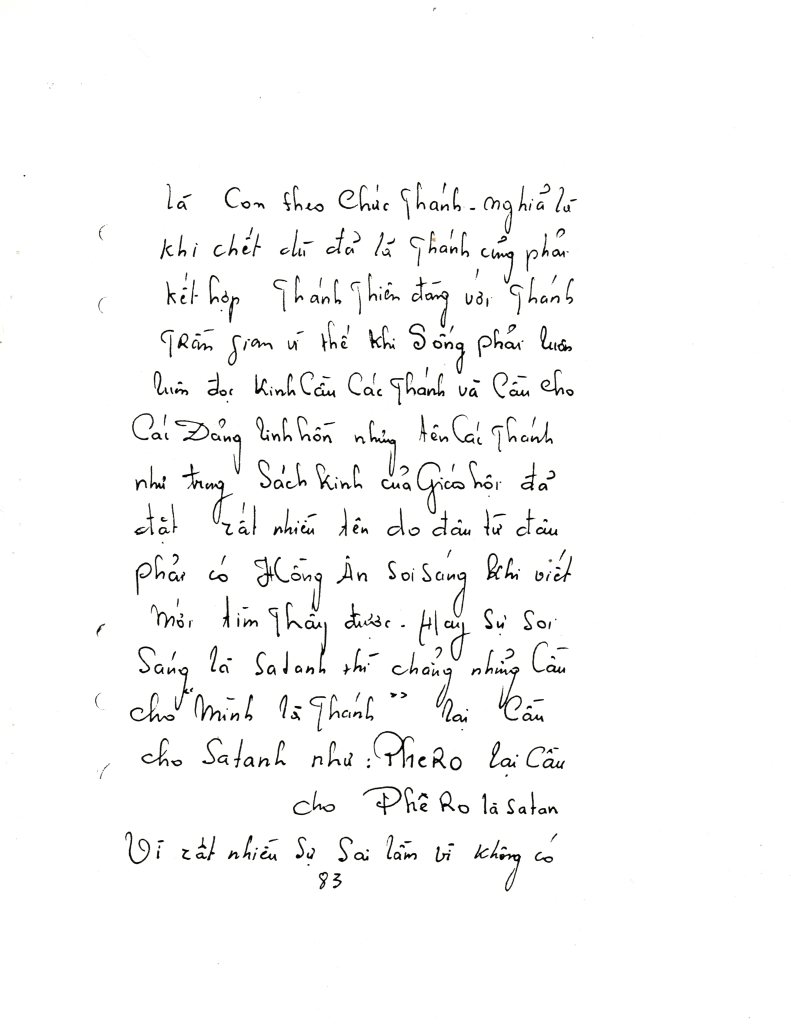 là Con theo Chức Thánh - nghiả là
khi chết dù đả là Thánh cũng phải
kết hợp Thánh Thiên đàng với Thánh
TRần gian vì thế khi Sống phải luôn
luôn đọc Kinh Cầu Các Thánh và Cầu cho
Các Đảng linh hồn những tên Các Thánh
như trong Sách Kinh của Giáo hội đả
đặt rất nhiều tên do đâu từ đâu
phải có Hồng Ân Soi Sáng khi viết
mới tìm Thấy được - Hay Sự Soi
Sáng là Satanh thì chẳng những Cầu
cho "Mình là Thánh" lại Cầu
cho Satanh như : PheRo lại Cầu
cho Phê Ro là Satan
Vì rất nhiều Sự Sai lầm vì không có
83